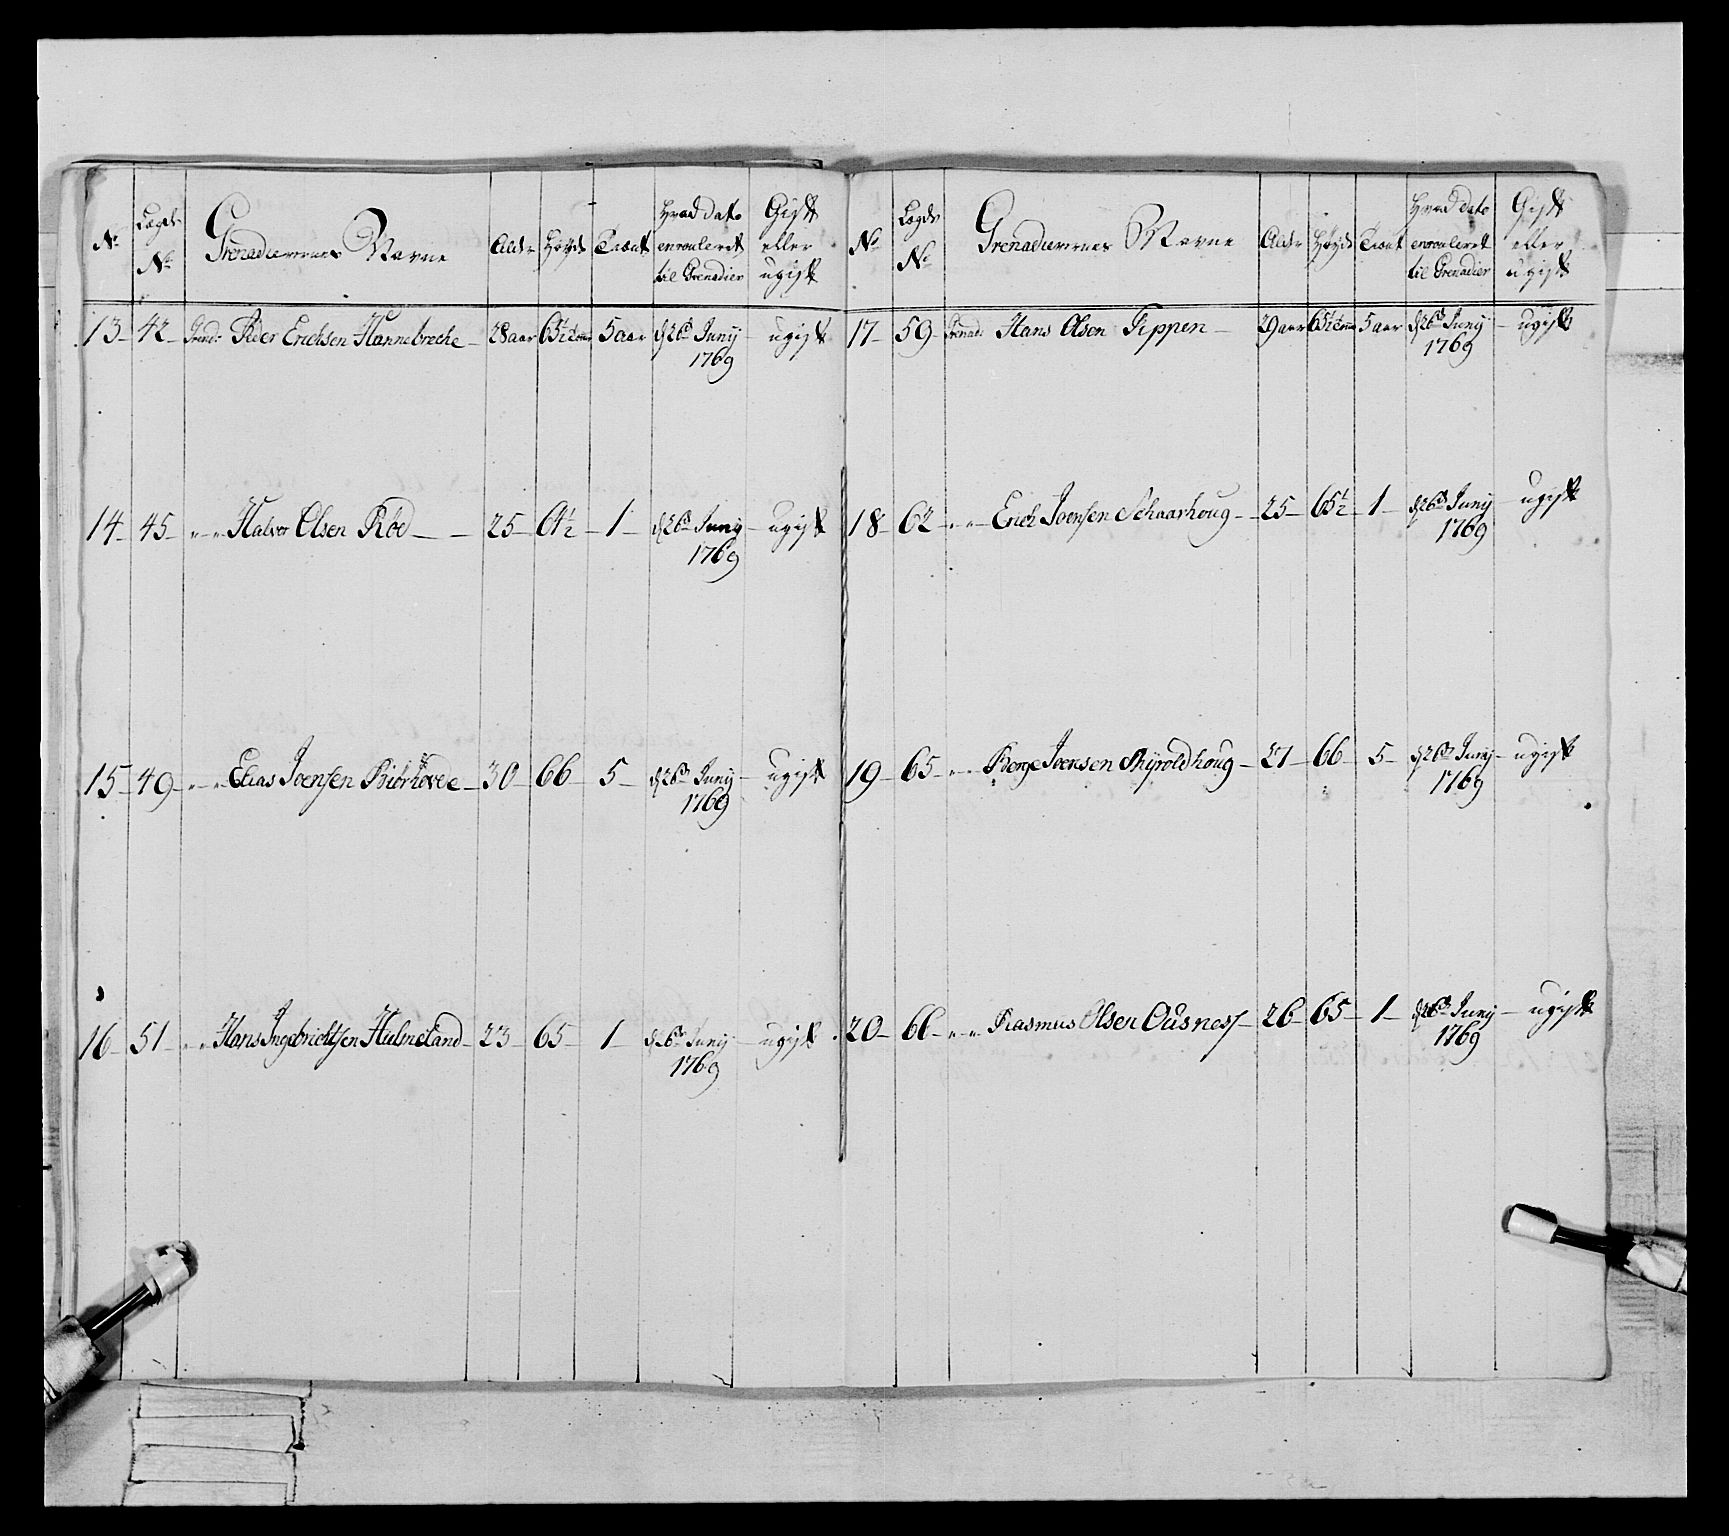 No Lægds No Grenadierernes Navne Alder Høyde Tient Hvad dato enrouleret til Grenadier Gift eller ugift
13 42 Grenad: Peder Erichsen Hannebreche 28 aar 65½ tom 5 aar d 26de Junij 1769 ugift
14 45 " " Halvor Olsen Röd 25 64½ 1 d 26de Junij 1769 ugift
15 49 " " Elias Joensen 30 66 5 d 26de Junij 1769 ugift
16 51 " " Hans Ingebrichtsen Hulmeland 23 65 1 d 26de Junij 1769 ugift
No Lægds No Grenadierernes Navne Alder Høyde Tient Hvad dato enrouleret til Grenadier Gift eller ugift
17 59 Grenad: Hans Olsen Tippen 29 aar 65½ tom 5 aar d 26de Junij 1769 ugift
18 62 " " Erich Joensen Schaarhoug 25 65½ 1 d 26de Junij 1769 ugift
19 65 " " Berge Joensen 27 66 5 d 26de Junij 1769 ugift
20 66 " " Rasmus Olsen Ousness 26 65 1 d 26de Junij 1769 ugift